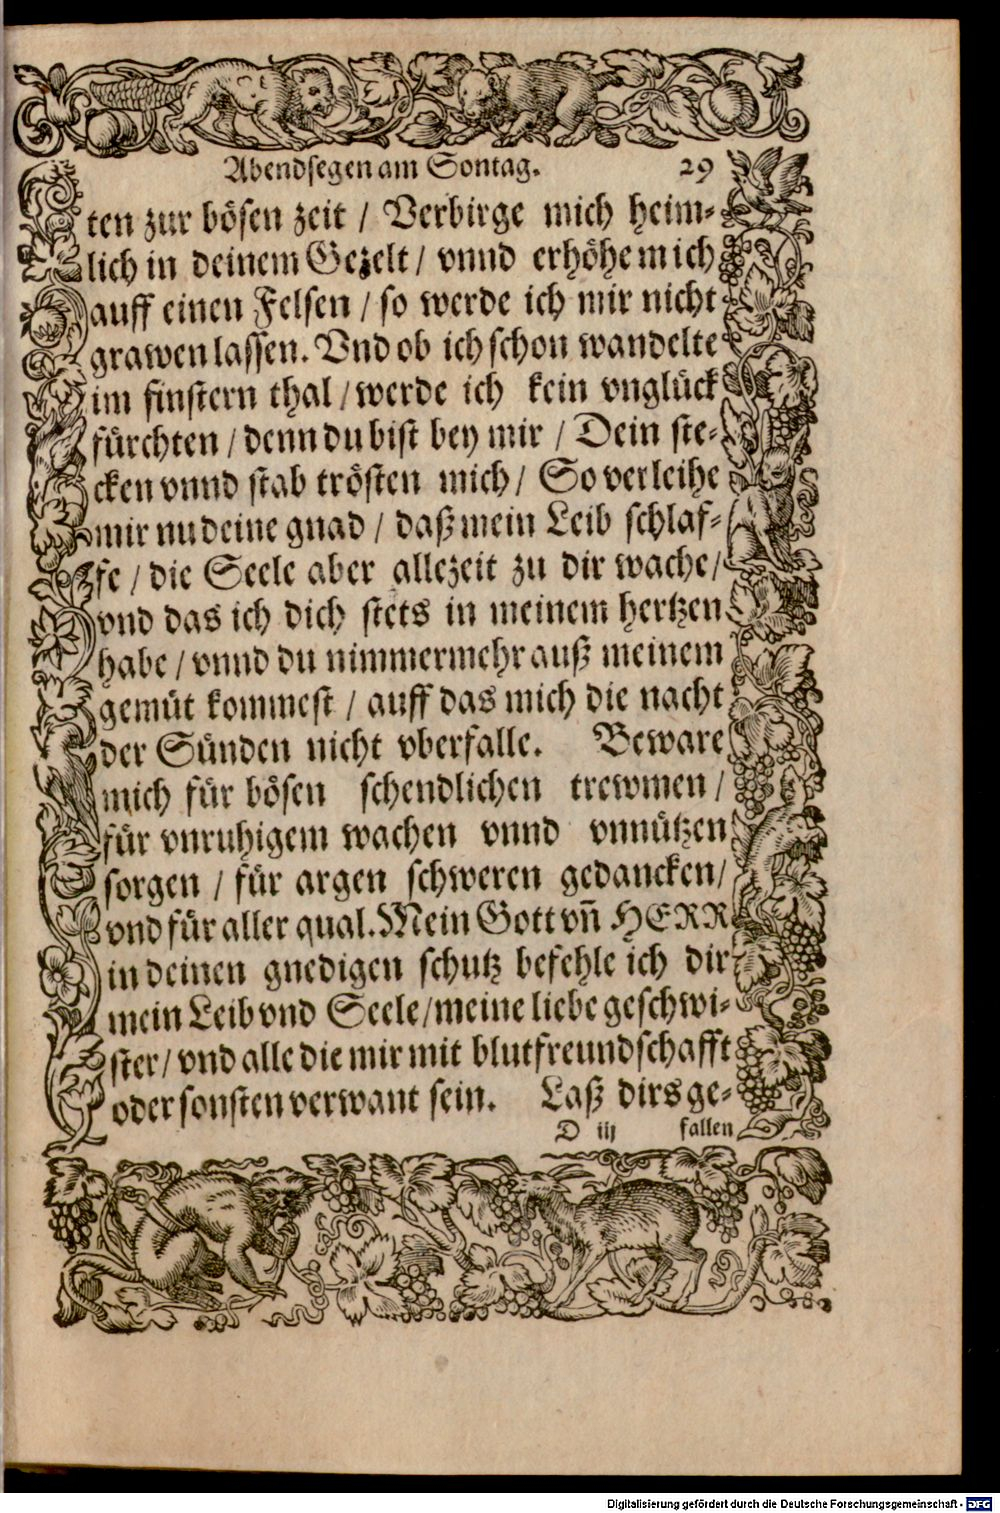 Abendsegen am Sontag. 29
ten zur bösen zeit / Verbirge mich heim-
lich in deinem Gezelt / vnnd erhöhe mich
auff einen Felsen / so werde ich mir nicht
grawen lassen. Vnd ob ich schon wandelte
im finstern thal / werde ich kein vnglück
fürchten / denn du bist bey mir / Dein ste-
cken vnnd stab trösten mich / So verleihe
mir nu deine gnad / daß mein Leib schlaf-
fe / die Seele aber allezeit zu dir wache /
vnd das ich dich stets in meinem hertzen
habe / vnnd du nimmermehr auß meinem
gemüt kommest / auff das mich die nacht
der Sünden nicht vberfalle. Beware
mich für bösen schendlichen trewmen /
für vnruhigem wachen vnnd vnnützen
sorgen / für argen schweren gedancken /
vnd für aller qual. Mein Gott vn̄ HERR
in deinen gnedigen schutz befehle ich dir
mein Leib vnd Seele / meine liebe geschwi-
ster / vnd alle die mir mit blutfreundschafft
oder sonsten verwant sein. Laß dirs ge-
D iij fallen
Digitalisierung gefördert durch die Deutsche Forschungsgemeinschaft - DFG